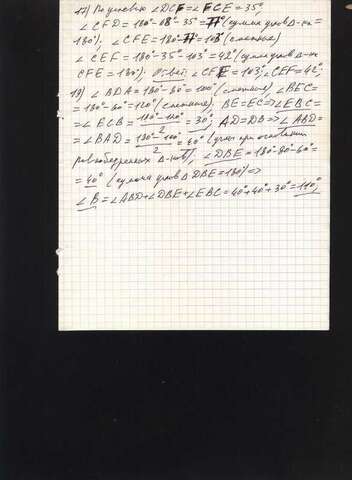 17) По условию ∠DCF=∠FCE=35°,
∠CFD=180°-68°-35°=77° (сумма углов Δ-ка=
180°), ∠CFE=180°-77°=103° (смежные)
∠CEF=180°-35°-103°=42° (сумма углов Δ-ка
CFE=180°). Ответ: ∠CFE=103°, ∠CEF=42°,
18) ∠BDA=180°-80°=100° (смежные), ∠BEC=
=180°-60°=120° (смежные). BE=EC=>∠EBC=
=∠ECB=180°-120°/2=30°, AD=DB=>∠ABD=
=∠BAD=180°-100°/2=40° (углы при основании
равнобедренных Δ-ков), ∠DBE=180°-80°-60°=
=40° (сумма углов ΔDBE=180°)=>
∠B=∠ABD+∠DBE+∠EBC=40°+40°+30°=110°